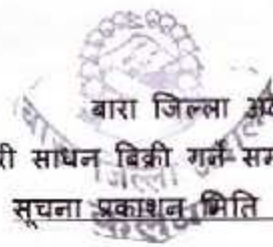 बारा जिल्ला अ
री साधन बिक्री गर्ने सम
सूचना प्रकाशन मिति